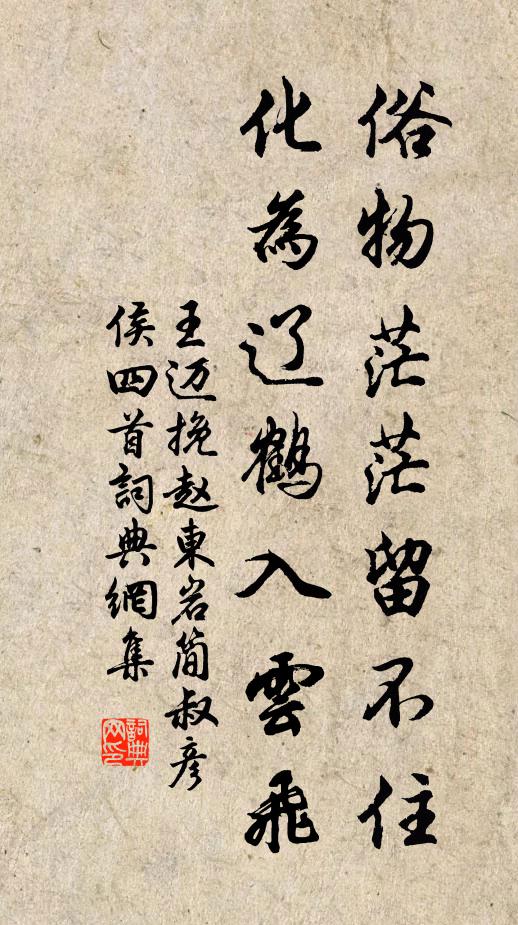 俗物茫茫留不住
化為辽鶴入雲飛
王迈挽赵東岩简叔彦
侯四首詞典網集
詞典网印